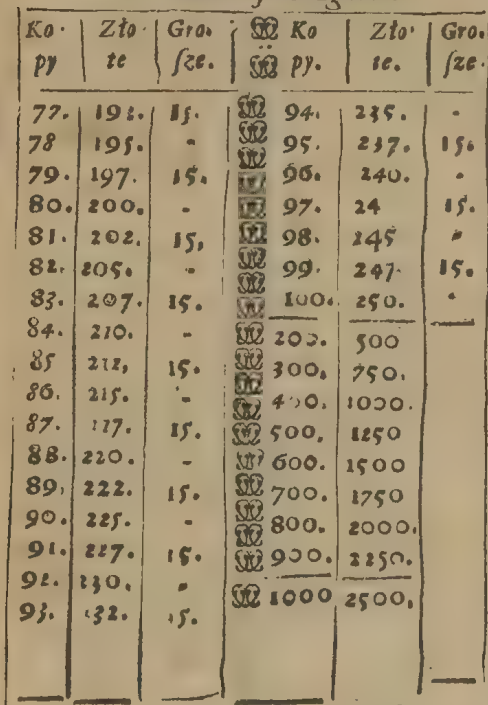 Ko- Zło- Gro. Ko Zło- Gro.
py te ſze. py. te. ſze.
77. 192. 15. 94. 235. -
78 195. - 95. 237. 15.
79. 197. 15. 96. 240. -
80. 200. - 97. 24 15.
81. 202. 15. 98. 245 -
82. 205. - 99. 247. 15.
83. 207. 15. 100. 250. -
84. 210. - 200. 500
85 212. 15. 300. 750.
86. 215. - 400. 1000.
87. 217. 15. 500. 1250
88. 220. - 600. 1500
89. 222. 15. 700. 1750
90. 225. - 800. 2000.
91. 227. 15. 900. 2250.
92. 230. - 1000 2500.
93. 232. 15.